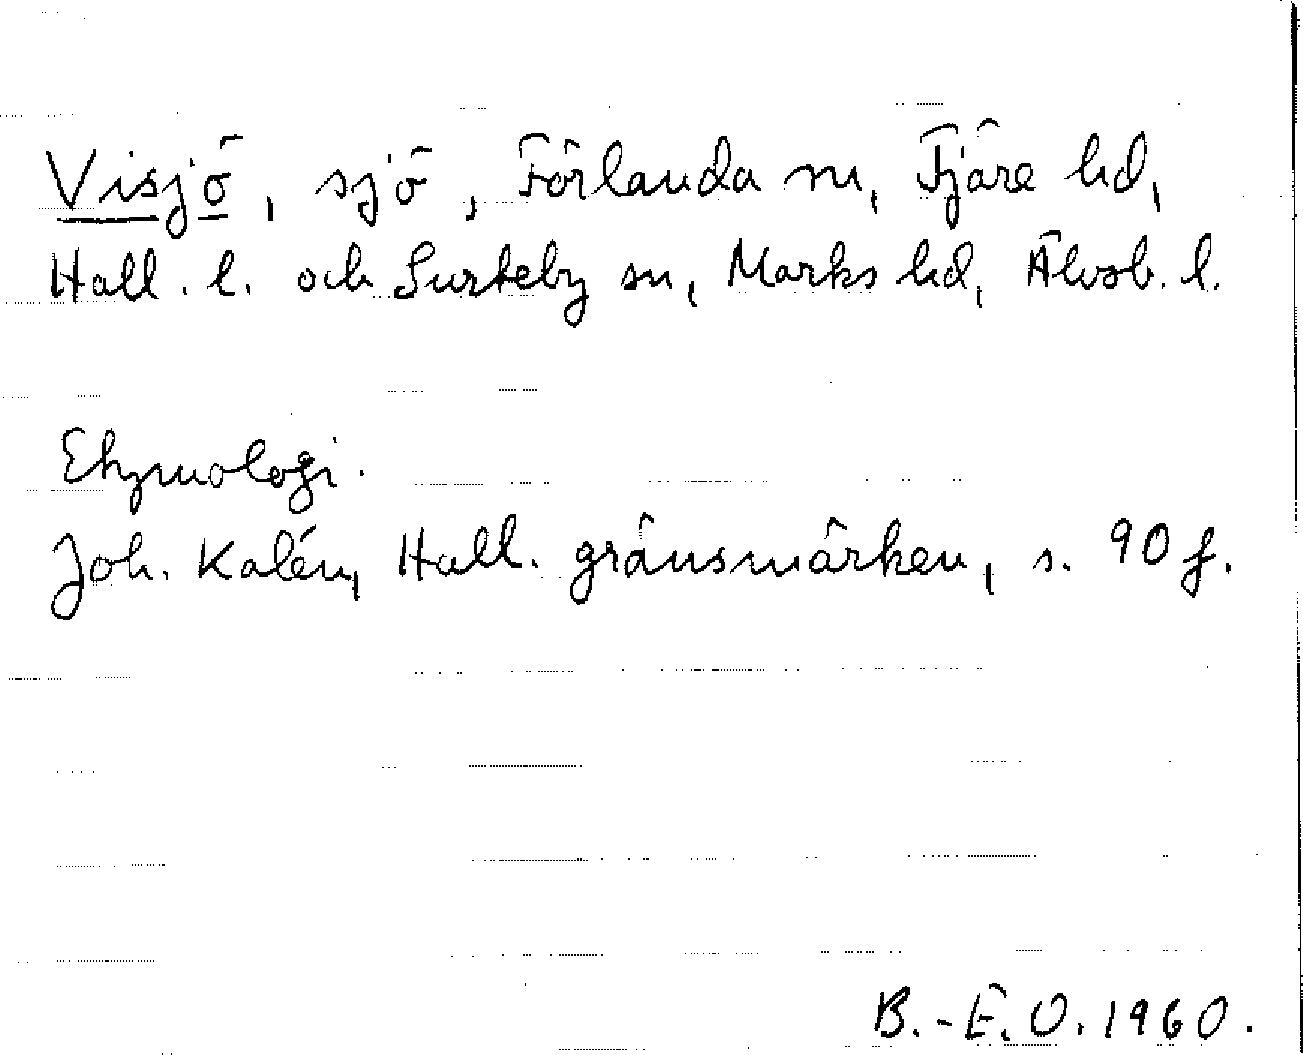 Visjö, sjö, Förlanda sn, Fjäre hd,
Hall. l. och Surteby sn, Marks hd, Älvsb. l.
Etymologi.
Joh. Kalén, Hall. gränsmärken, s. 90 f.
B.-E. O. 1960.